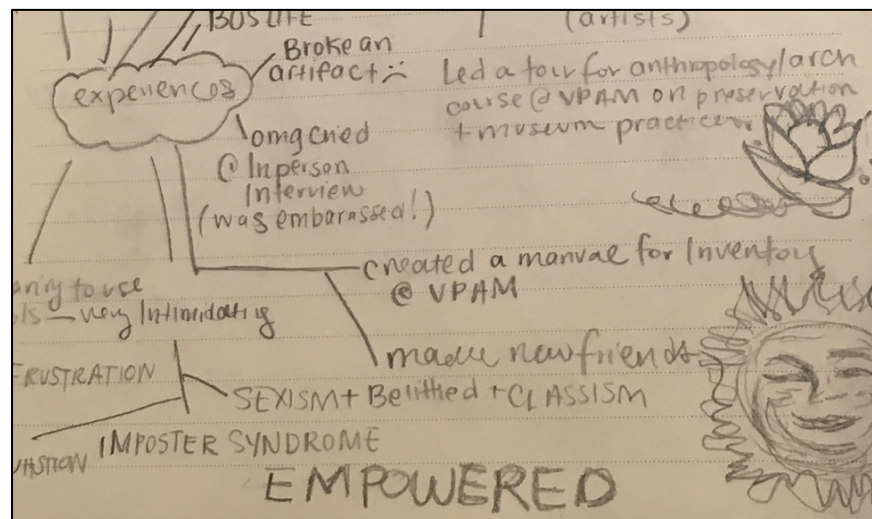 BUS LIFE
(artists)
Broke an
artifact :(
experiences
Led a tour for anthropology/arch
course @ VPAM on preservation
+ museum practices
omg cried
@ In person
Interview
(was embarassed!)
created a manual for Inventory
@ VPAM
to use
very Intimidating
made new friends
FRUSTRATION
SEXISM + Belittled + CLASSISM
IMPOSTER SYNDROME
EMPOWERED